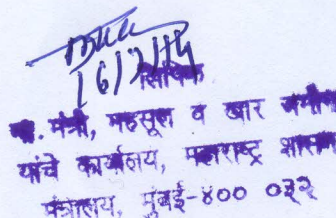 16/2/15
लिपिक
मा. मंत्री, महसूल व खार जमीन
यांचे कार्यालय, महाराष्ट्र शासन
मंत्रालय, मुंबई-४०० ०३२